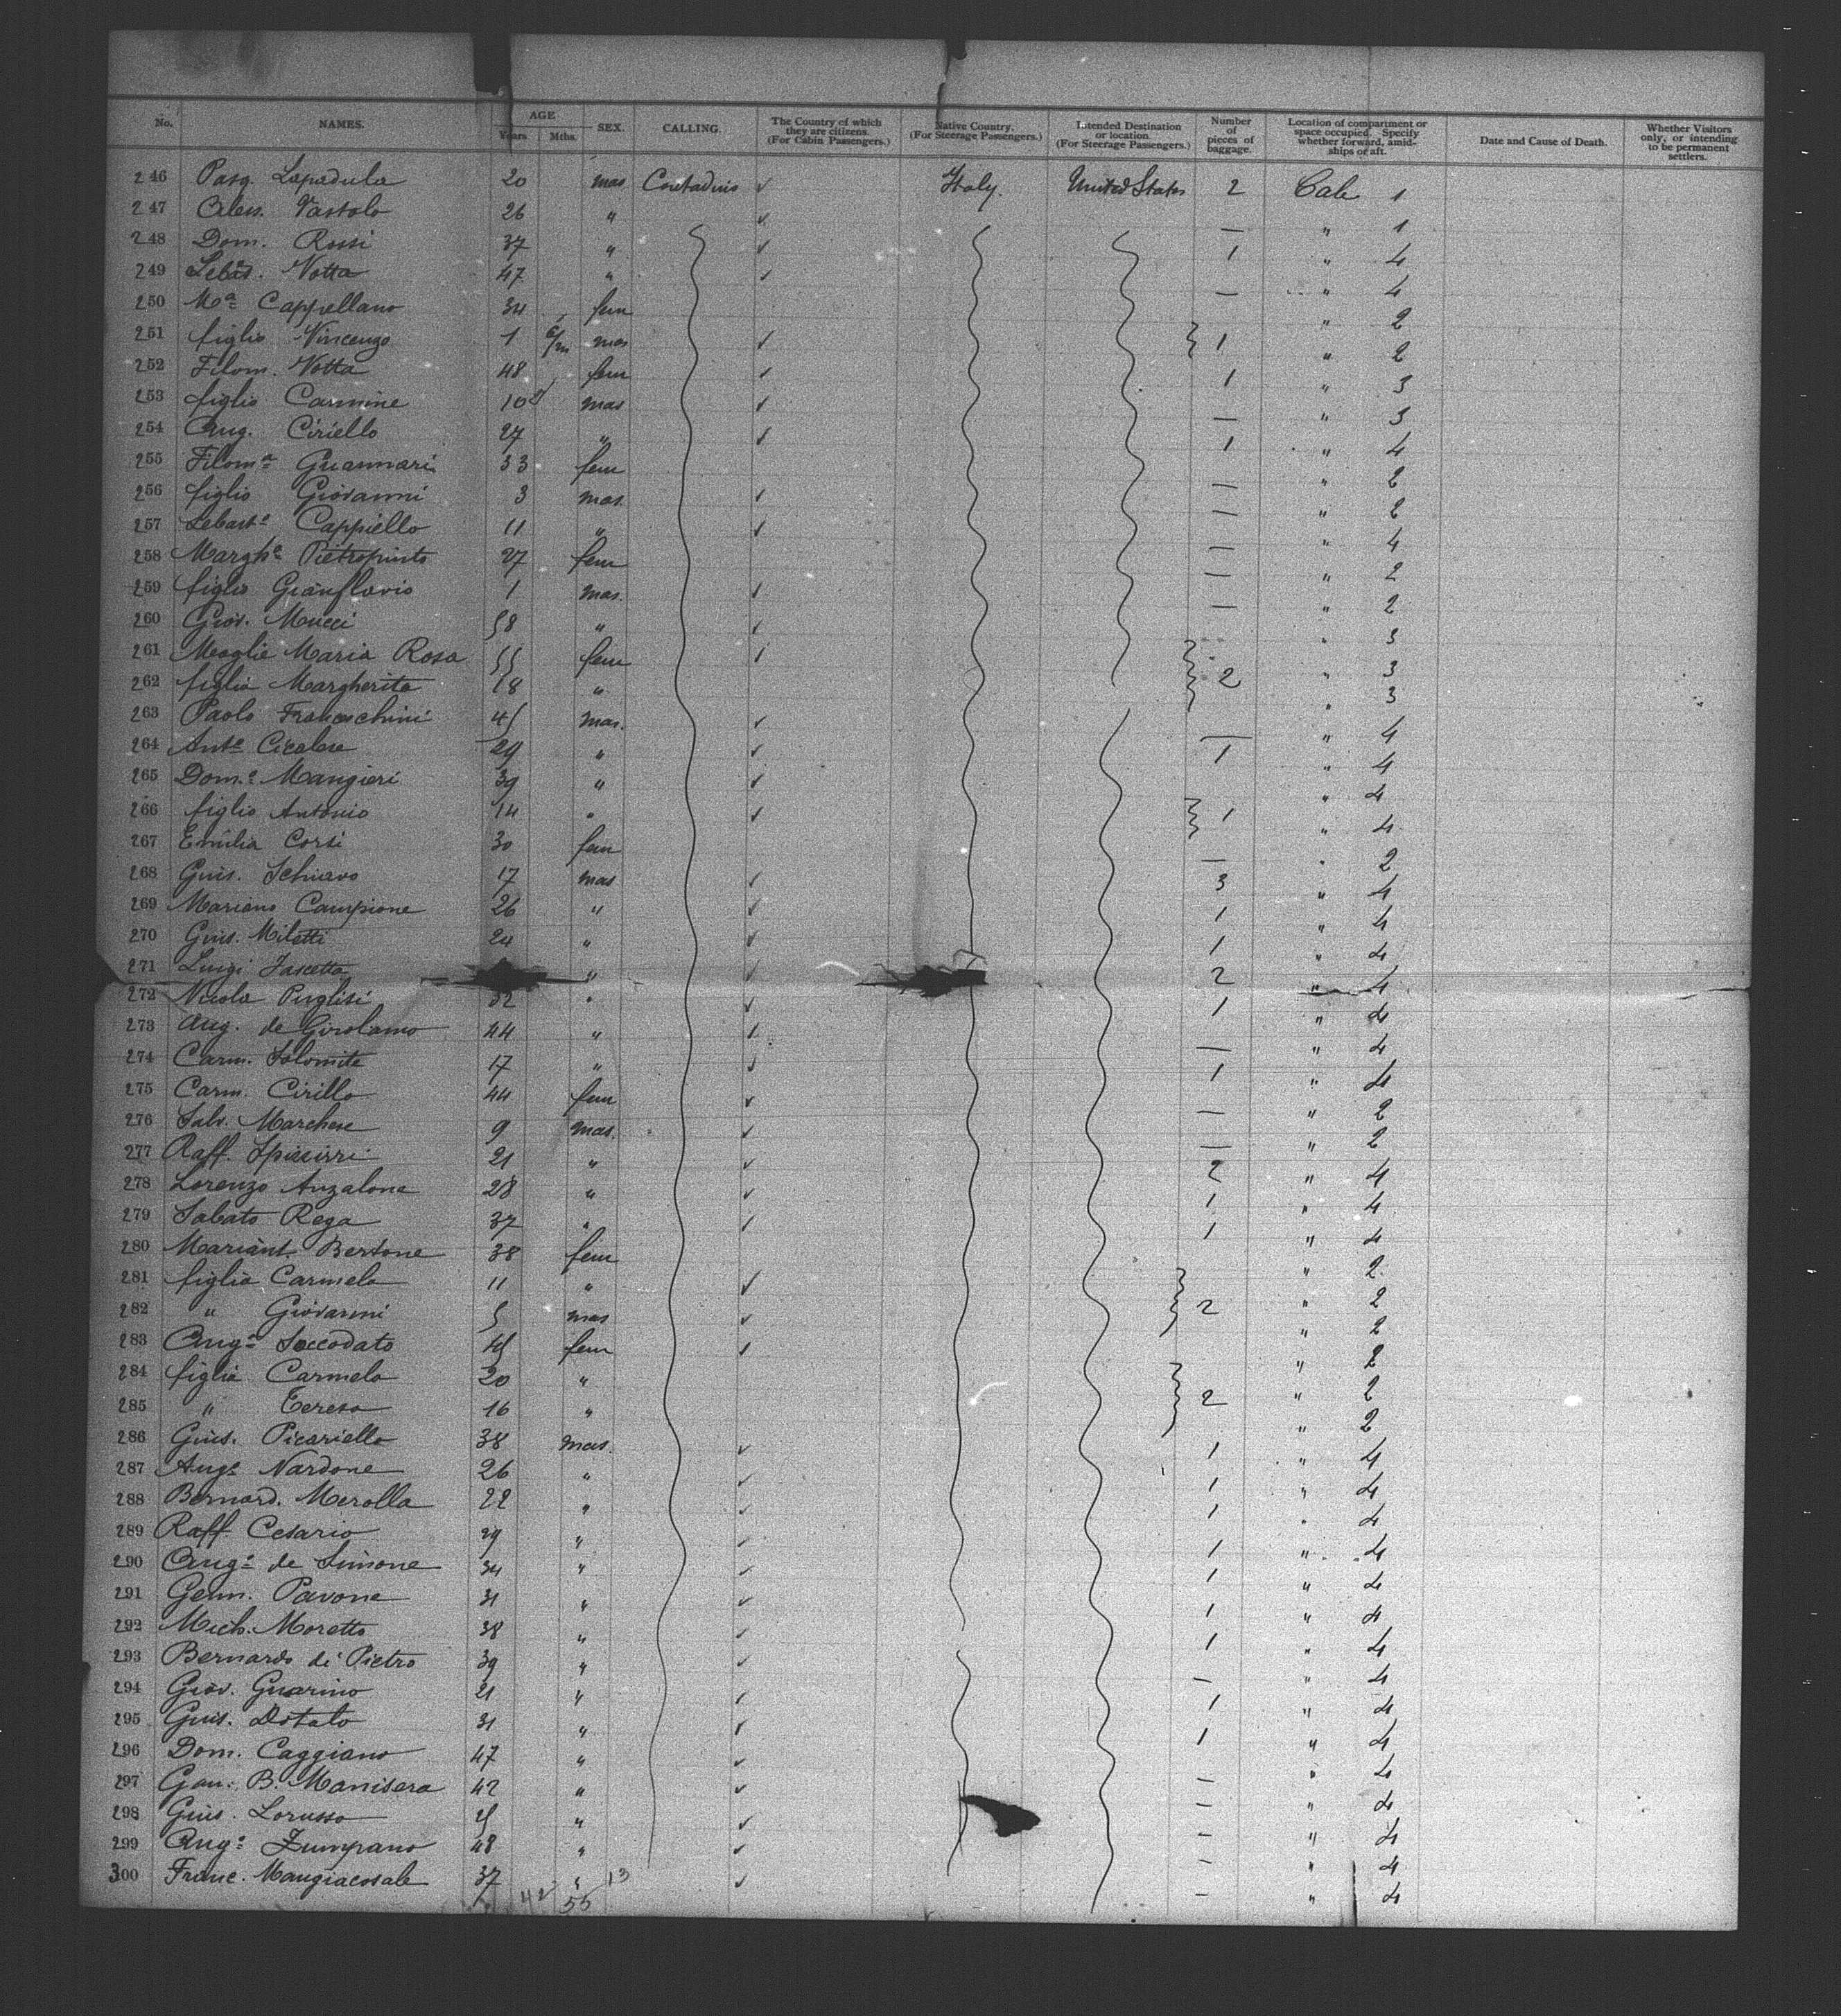 No. NAMES. AGE Years Mths. SEX. CALLING. The Country of which they are citizens. (For Cabin Passengers.) Native Country. (For Steerage Passengers.) Intended Destination or location. (For Steerage Passengers.) Number of pieces of baggage. Location of compartment or space occupied. Specify whether forward, amid-ships or aft. Date and Cause of Death. Whether Visitors only, or intending to be permanent settlers.
246 Pasq. Lapadula 20 mas Contadino ✓ Italy. United States 2 Cale 1
247 Aless. Vastolo 26 " ✓ — " 1
248 Dom. Rossi 37 " ✓ 1 " 4
249 Sebas. Votta 47 " ✓ — " 4
250 Mª Cappellano 34 fem " 2
251 figlio Vincenzo 1 6/m mas ✓ 1 " 2
252 Filom. Votta 48 fem ✓ 1 " 3
253 figlio Carmine 10 mas ✓ — " 3
254 Ang. Ciriello 27 " ✓ 1 " 4
255 Filomª Guannari 33 fem — " 2
256 figlio Giovanni 3 mas. ✓ — " 2
257 Sebastº Cappiello 11 " ✓ — " 4
258 Marghª Pietropinto 27 fem — " 2
259 figlio Gianflavio 1 mas. ✓ — " 2
260 Giov. Mucci 58 " ✓ " 3
261 Moglie Maria Rosa 55 fem ✓ 2 " 3
262 figlia Margherita 18 " " 3
263 Paolo Franceschini 45 mas. ✓ — " 4
264 Antº Cicalese 29 " ✓ 1 " 4
265 Dom.º Mangieri 39 " ✓ " 4
266 figlio Antonio 14 " ✓ 1 " 4
267 Emilia Corsi 30 fem — " 2
268 Gius. Schiavo 17 mas ✓ 3 " 4
269 Mariano Campione 26 " ✓ 1 " 4
270 Gius. Miletti 24 " ✓ 1 " 4
271 Luigi Fascetta " ✓ 2 " 4
272 Nicola Puglisi 32 " ✓ 1 " 4
273 Ang. de Girolamo 44 " ✓ — " 4
274 Carm. Salomita 17 " ✓ 1 " 4
275 Carm. Cirillo 44 fem ✓ — " 2
276 Salv. Marchese 9 mas. ✓ — " 2
277 Raff. Spizzirri 21 " ✓ 2 " 4
278 Lorenzo Anzalone 28 " ✓ 1 " 4
279 Sabato Rega 37 " ✓ 1 " 4
280 Mariant. Bertone 38 fem " 2
281 figlia Carmela 11 " ✓ 2 " 2
282 " Giovanni 5 mas ✓ " 2
283 Angª Soccodato 45 fem ✓ " 2
284 figlia Carmela 20 " 2 " 2
285 " Teresa 16 " " 2
286 Gius. Picariello 38 mas. ✓ 1 " 4
287 Angº Nardone 26 " ✓ 1 " 4
288 Bernard. Merolla 22 " ✓ 1 " 4
289 Raff. Cesario 29 " ✓ 1 " 4
290 Angº de Simone 34 " ✓ 1 " 4
291 Genn. Pavone 31 " ✓ 1 " 4
292 Mich. Moretto 38 " ✓ 1 " 4
293 Bernardo di Pietro 39 " ✓ — " 4
294 Giov. Guarino 21 " ✓ 1 " 4
295 Gius. Dotato 31 " ✓ 1 " 4
296 Dom. Caggiano 47 " ✓ " 4
297 Giov. B. Manisera 42 " ✓ — " 4
298 Gius. Lorusso 25 " ✓ — " 4
299 Angº Zumpano 48 " ✓ — " 4
300 Franc. Mangiacasale 37 " ✓ — " 4
42 55 13